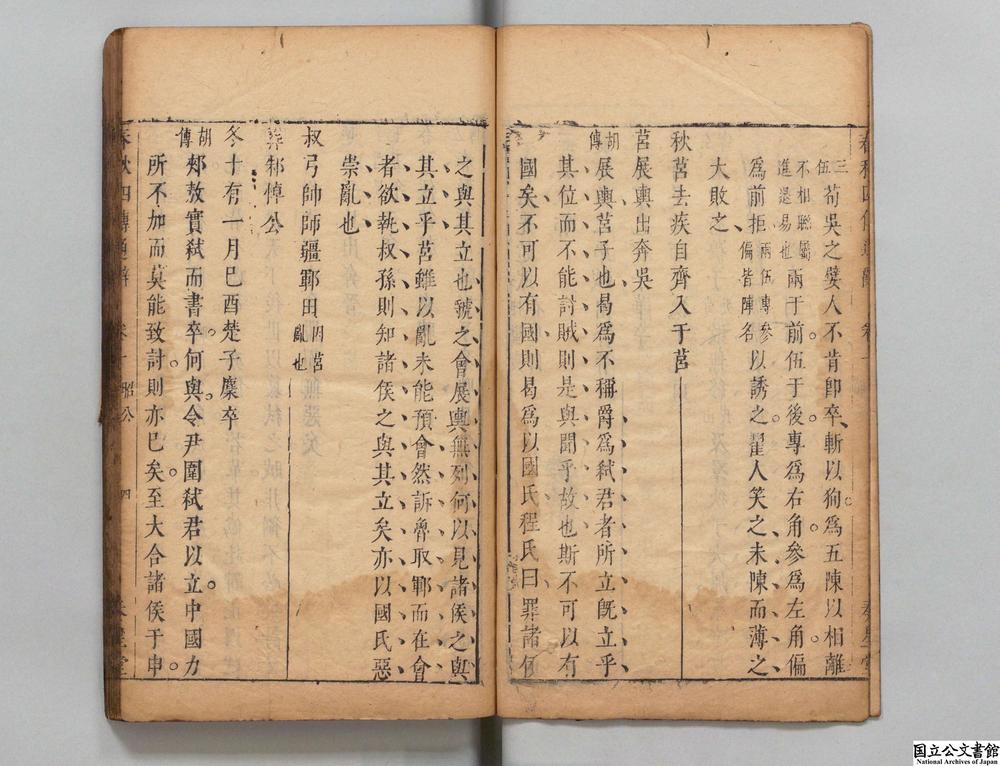 三伍荀吳之嬖人不肯卽卒斬以狥爲五陳以相離
不相聯屬進退易也兩于前伍于後專爲右角參爲左角偏
爲前拒兩伍專參偏皆陳名以誘之翟人笑之未陳而薄之
大敗之
秋莒去疾自齊入于莒
莒展輿出奔吳
胡傳展輿莒子也曷爲不稱爵爲弒君者所立旣立乎
其位而不能討賊則是與聞乎故也斯不可以有
國矣不可以有國則曷爲以國氏程氏曰罪諸侯
之與其立也虢之會展輿無列何以見諸侯之與
其立乎莒雖以亂未能預會然訴魯取鄆而在會
者欲執叔孫則知諸侯之與其立矣亦以國氏惡
崇亂也
叔弓帥師疆鄆田因莒亂也
葬邾悼公
冬十有一月巳酉楚子麇卒
胡傳郟敖實弒而書卒何與令尹圍弒君以立中國力
所不加而莫能致討則亦巳矣至大合諸侯于申
春秋四傳通辭 昭公 四
国立公文書館
National Archives of Japan